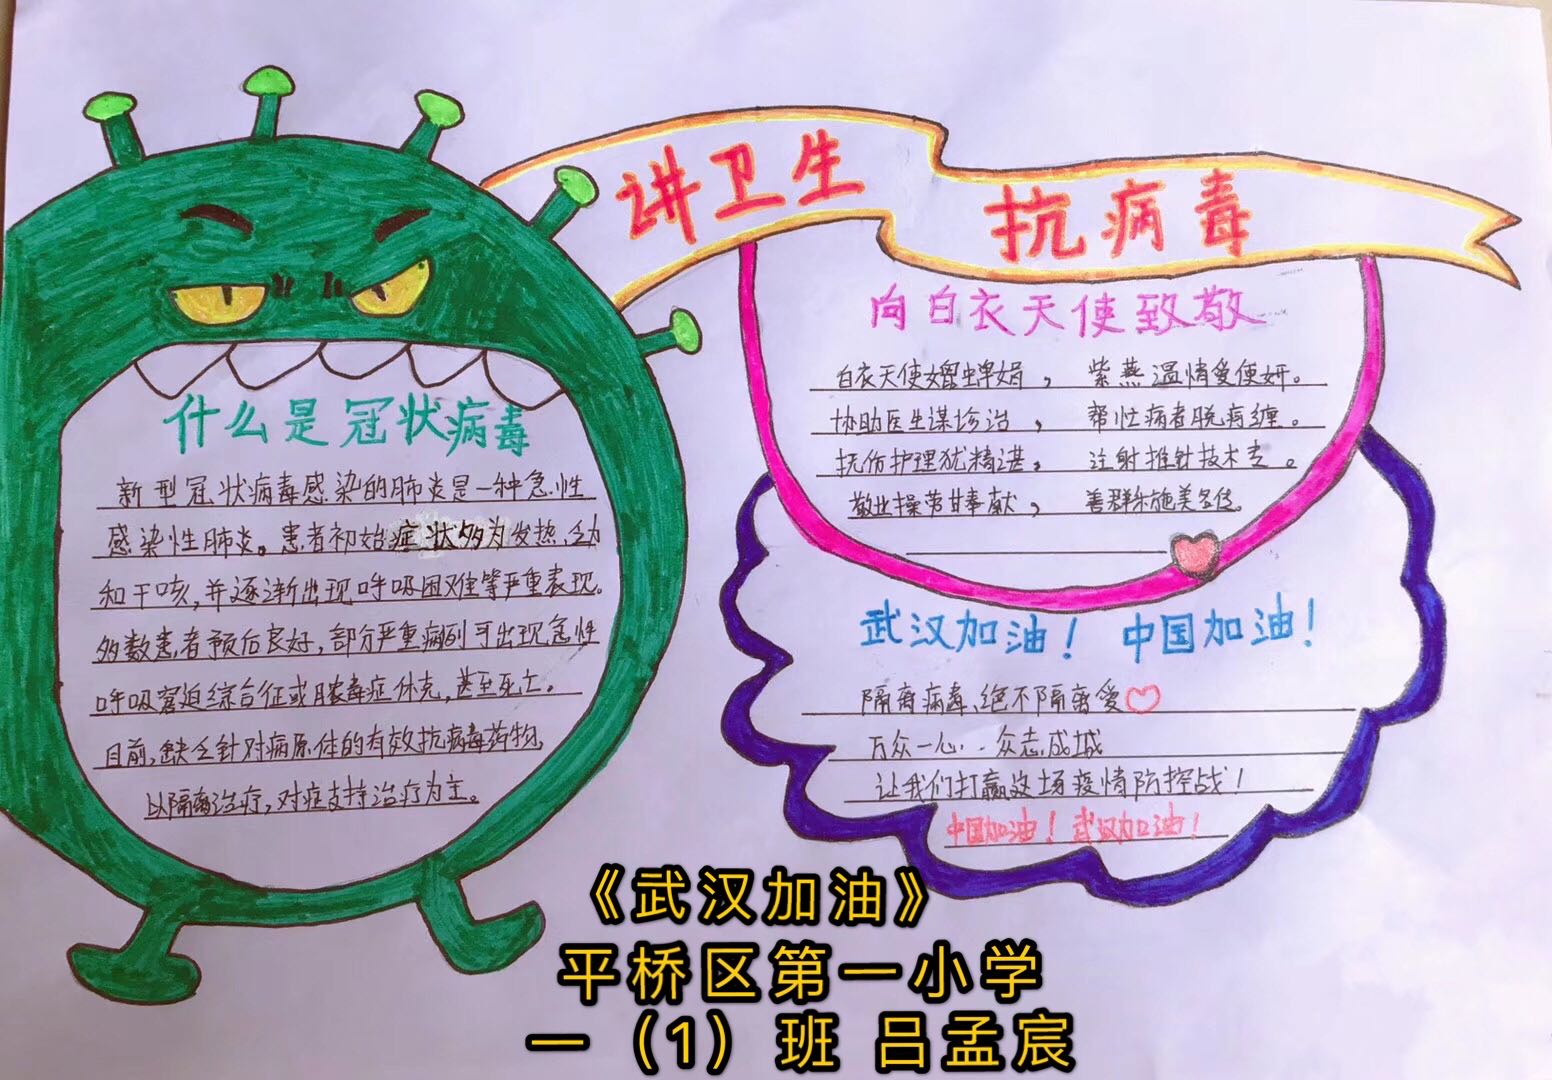 讲卫生 抗病毒
什么是冠状病毒
新型冠状病毒感染的肺炎是一种急性
感染性肺炎。患者初始症状多为发热、乏力
和干咳,并逐渐出现呼吸困难等严重表现。
多数患者预后良好,部分严重病例可出现急性
呼吸窘迫综合征或脓毒症休克,甚至死亡。
目前,缺乏针对病原体的有效抗病毒药物,
以隔离治疗,对症支持治疗为主。
向白衣天使致敬
白衣天使嬗蝉娟, 紫燕温情爱便妍。
协助医生谋诊治, 帮忙病者脱病缠。
抚伤护理犹精湛, 注射推针技术专。
敬业操劳甘奉献, 善群乐施美名传。
武汉加油! 中国加油!
隔离病毒、绝不隔离爱
万众一心..众志成城
让我们打赢这场疫情防控战!
中国加油! 武汉加油!
《武汉加油》
平桥区第一小学
一(1)班 吕孟宸